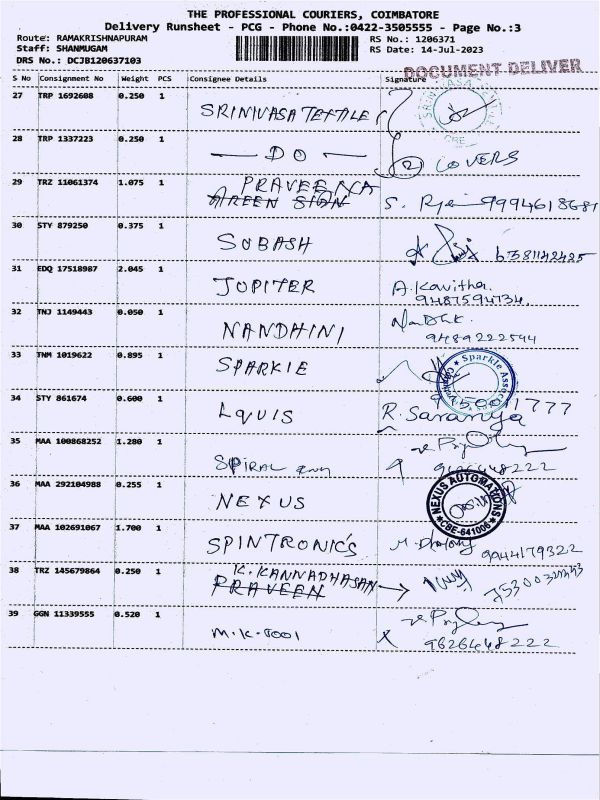 THE PROFESSIONAL COURIERS, COIMBATORE
Delivery Runsheet - PCG - Phone No.:0422-3505555 - Page No.:3
Route: RAMAKRISHNAPURAM RS No.: 1206371
Staff: SHANMUGAM RS Date: 14-Jul-2023
DRS No.: DCJB120637103
DOCUMENT DELIVER
S No Consignment No Weight PCS Consignee Details Signature
27 TRP 1692608 0.250 1 SRINIVASA TEXTILE
28 TRP 1337223 0.250 1 — DO — (2) COVERS
29 TRZ 11061374 1.075 1 PRAVEENA S. 9994618681
30 STY 879250 0.375 1 SUBASH 6381142485
31 EDQ 17518987 2.045 1 JUPITER A. Kavitha.
9487594734.
32 TNJ 1149443 0.050 1 NANDHINI
9489222544
33 TNM 1019622 0.895 1 SPARKIE Sparkle Assoc
34 STY 861674 0.600 1 LQUIS R. Saranya
35 MAA 100868252 1.280 1 SPIRAL 9626448222
36 MAA 292104988 0.255 1 NEXUS NEXUS AUTOMATIONS
CBE-641006
37 MAA 102691067 1.700 1 SPINTRONICS 9944179322
38 TRZ 145679864 0.250 1 K. KANNADHASAN
PRAVEEN
39 GGN 11339555 0.520 1 M.K.TOOL 9626448222